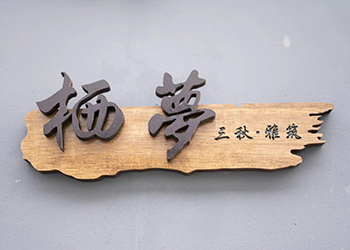 栖夢
三秋·雅筑